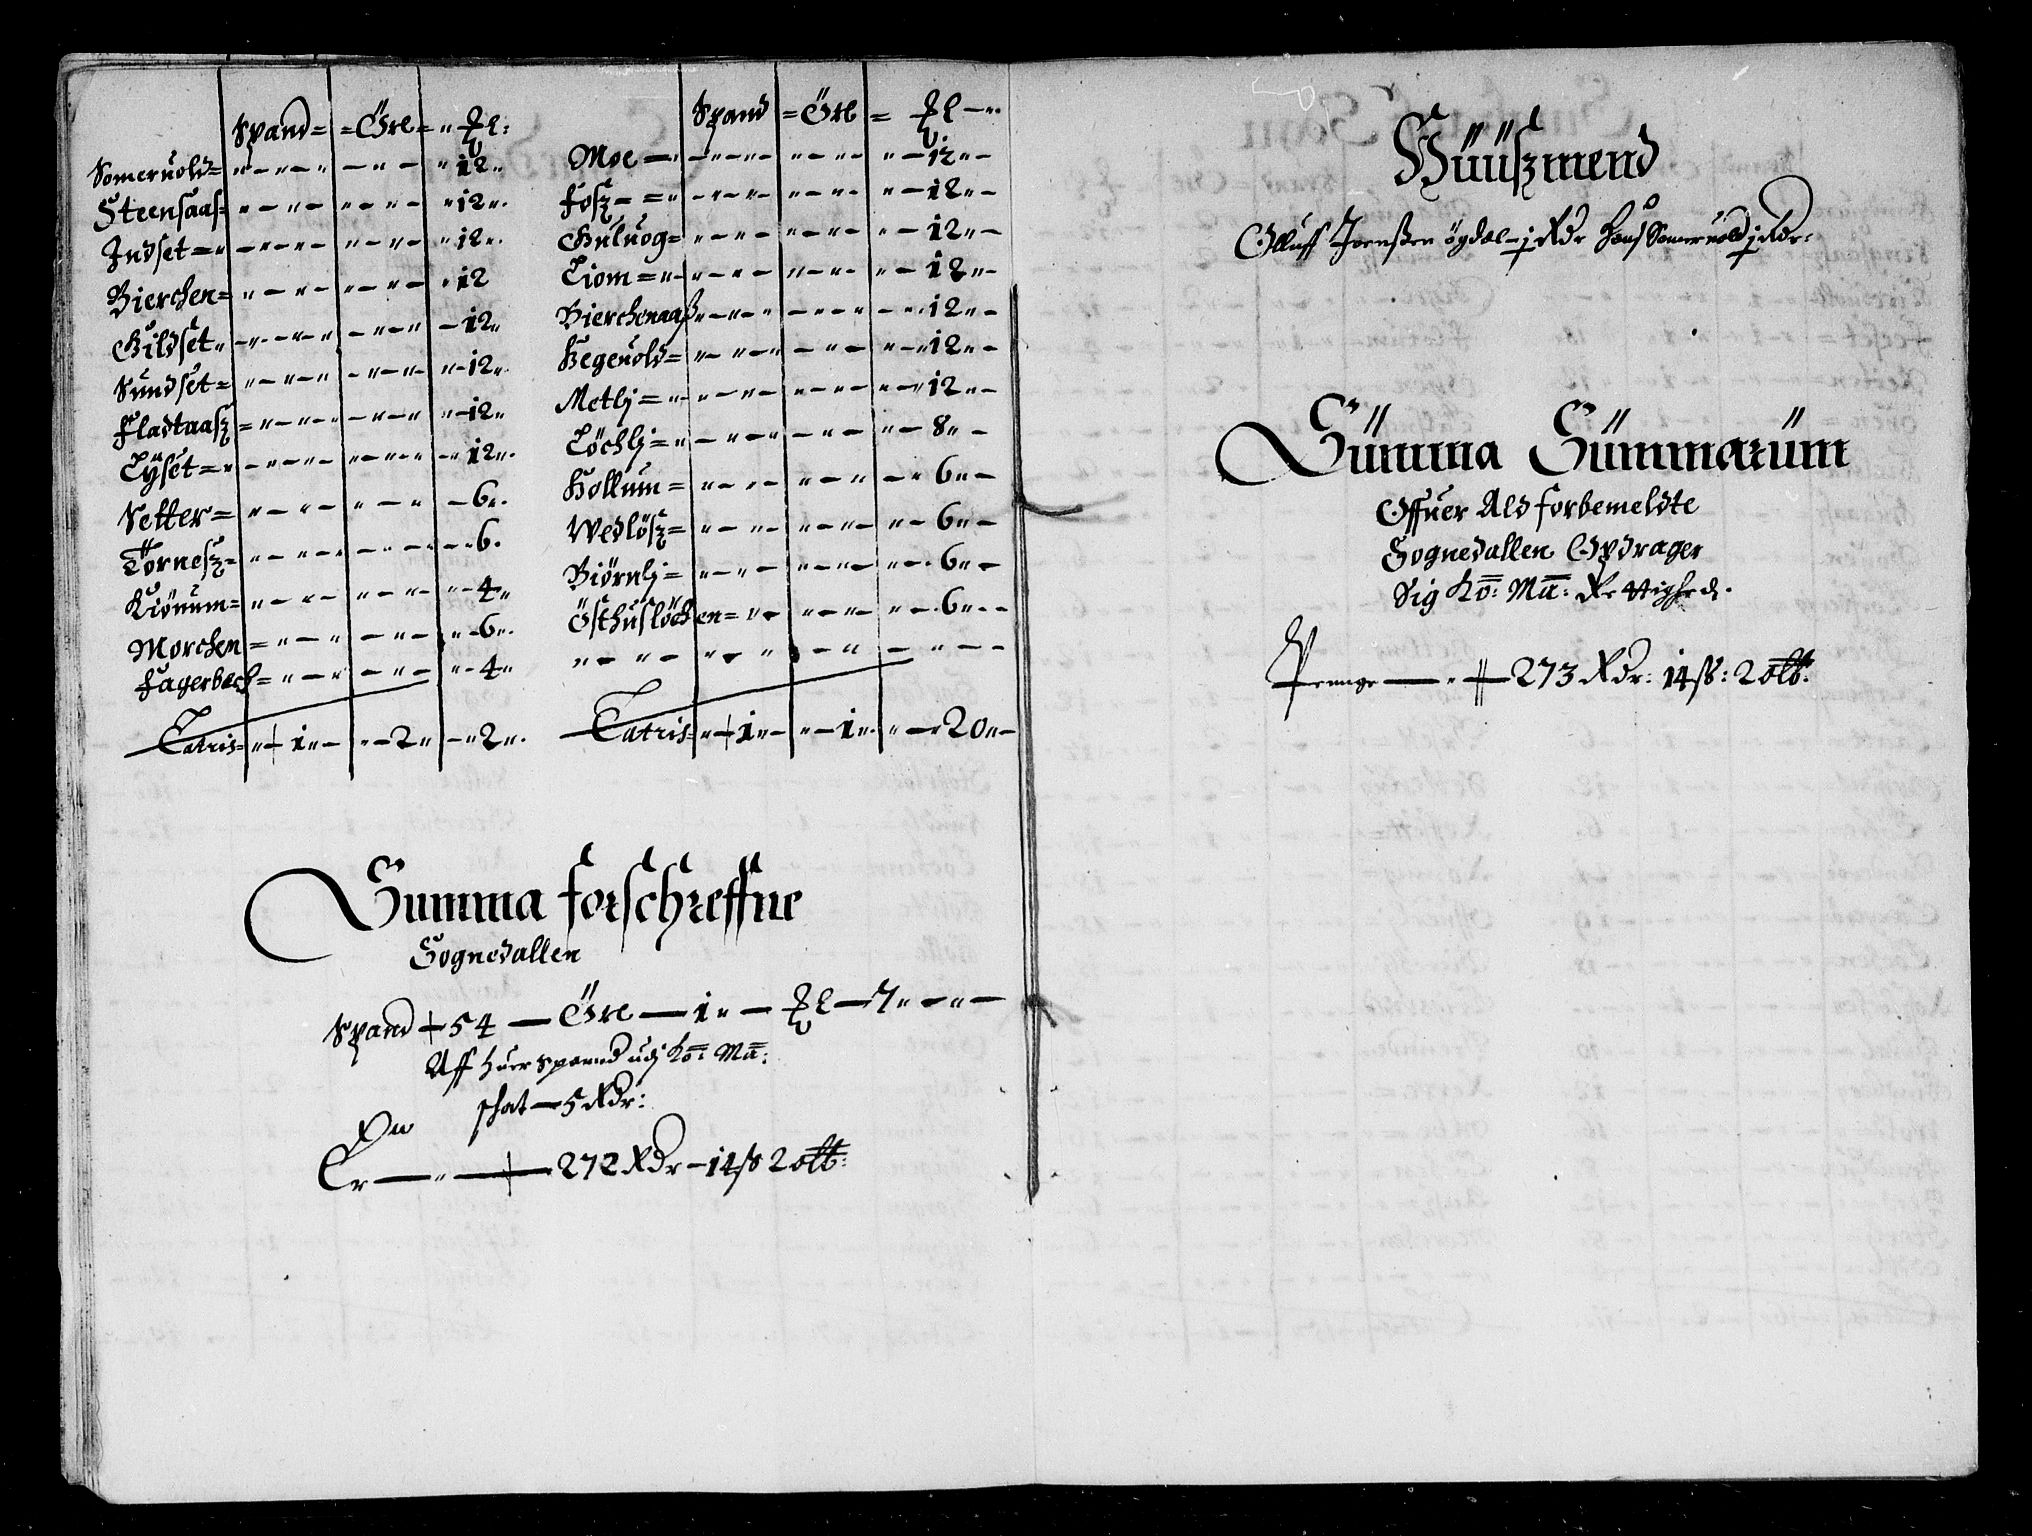 Spand = Öre = ℔:
Someruold = 12
Steensaas 12
Indset = 12
Bierchen = 12
Gildset 12
Sundset = 12
Fladtaasz = 12
Lyset = 12
Setter = 6
Tornesz = 6
Kiönum = 4
Morchen = 6
Fagerbech = 4
Latris = 1 2 2
Spand = Öre = ℔
Moe 12
Fosz = 12
Guluog = 12
Liom = 12
Bierchenaas 12
Hegeuold = 12
Metlj = 12
Löchlj = 8
Hollum = 6
Wedlösz = 6
Biörnlj = 6
Östhuslöchen = 6
Latris 1 1 20
Summa forschreffne
Sognedallen
Spand 54 Öre 1 7
Aff huer Spannd udj Ko: Ma:
schat 5 Rdr:
Er 272 Rdr 14 ß 2 alb:
Hüüszmend
Olluff Joenszen ögdal j Rdr Hans Someruold j Rdr:
Sümma Sümmarüm
Offuer Ald forbemeldte
Sognedallen Opdrager
Sig Ko: Ma: Rettighed.
Penninge 273 Rdr: 14 ß: 2 alb: